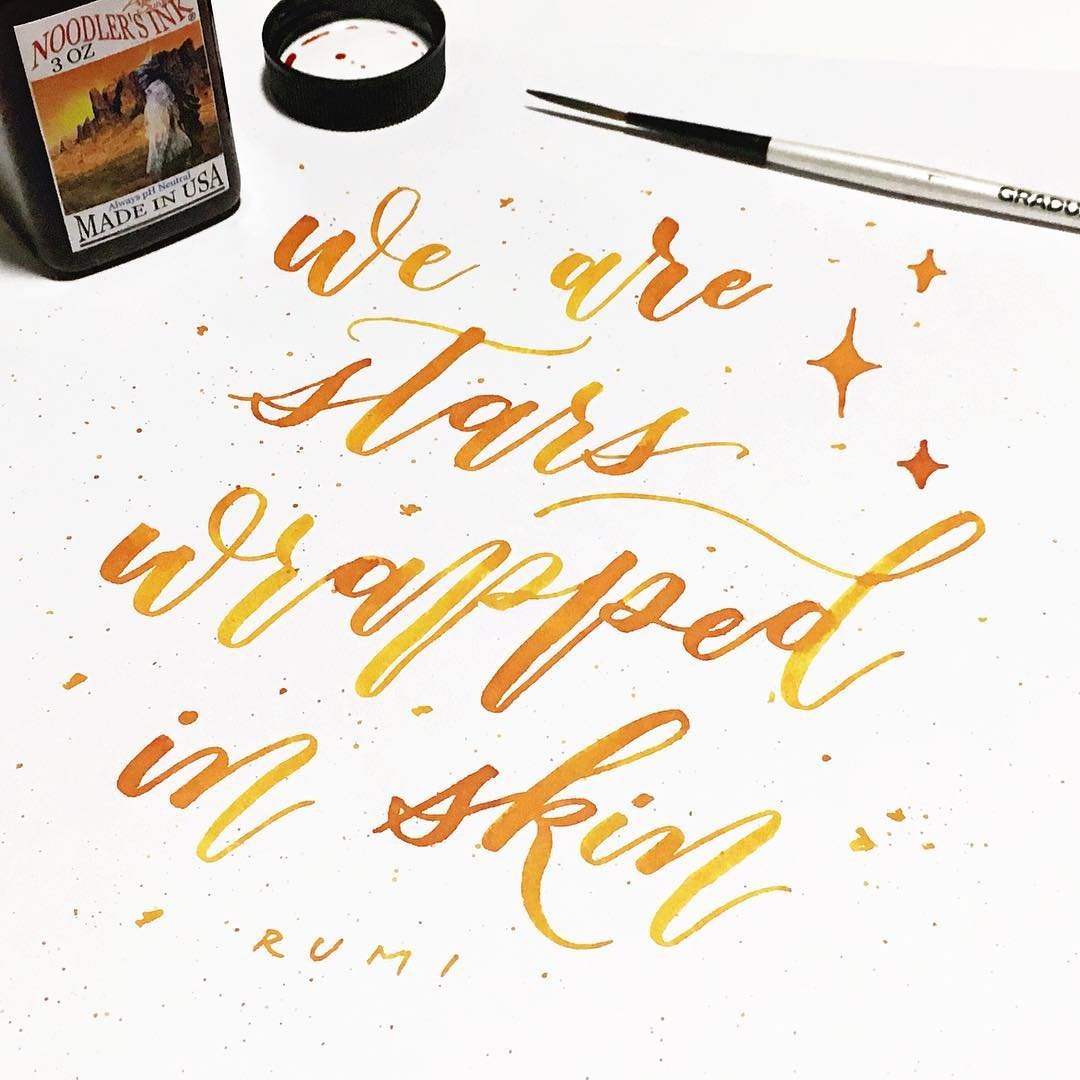 NOODLER'S INK®
3 OZ
Always pH Neutral
MADE IN USA
GRADU
we are
stars
wrapped
in skin
RUMI